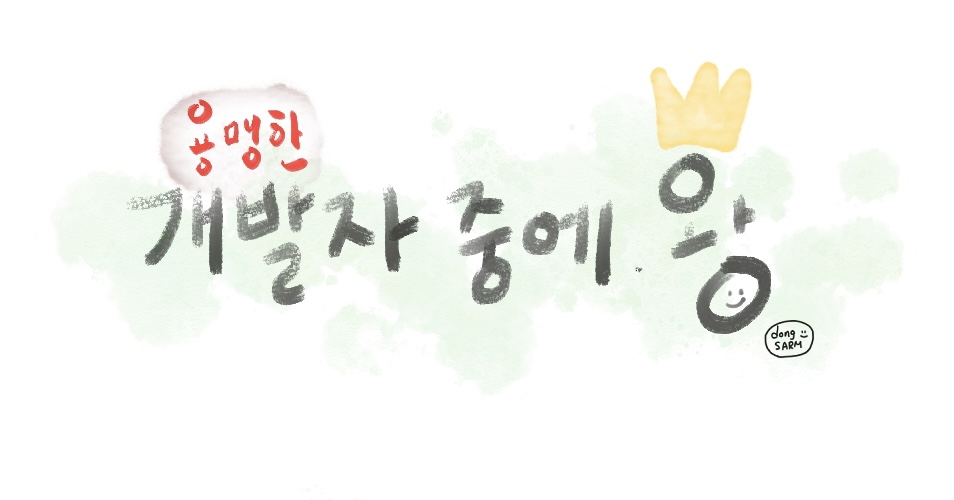 용맹한
개발자 중에 왕
dong
SARM